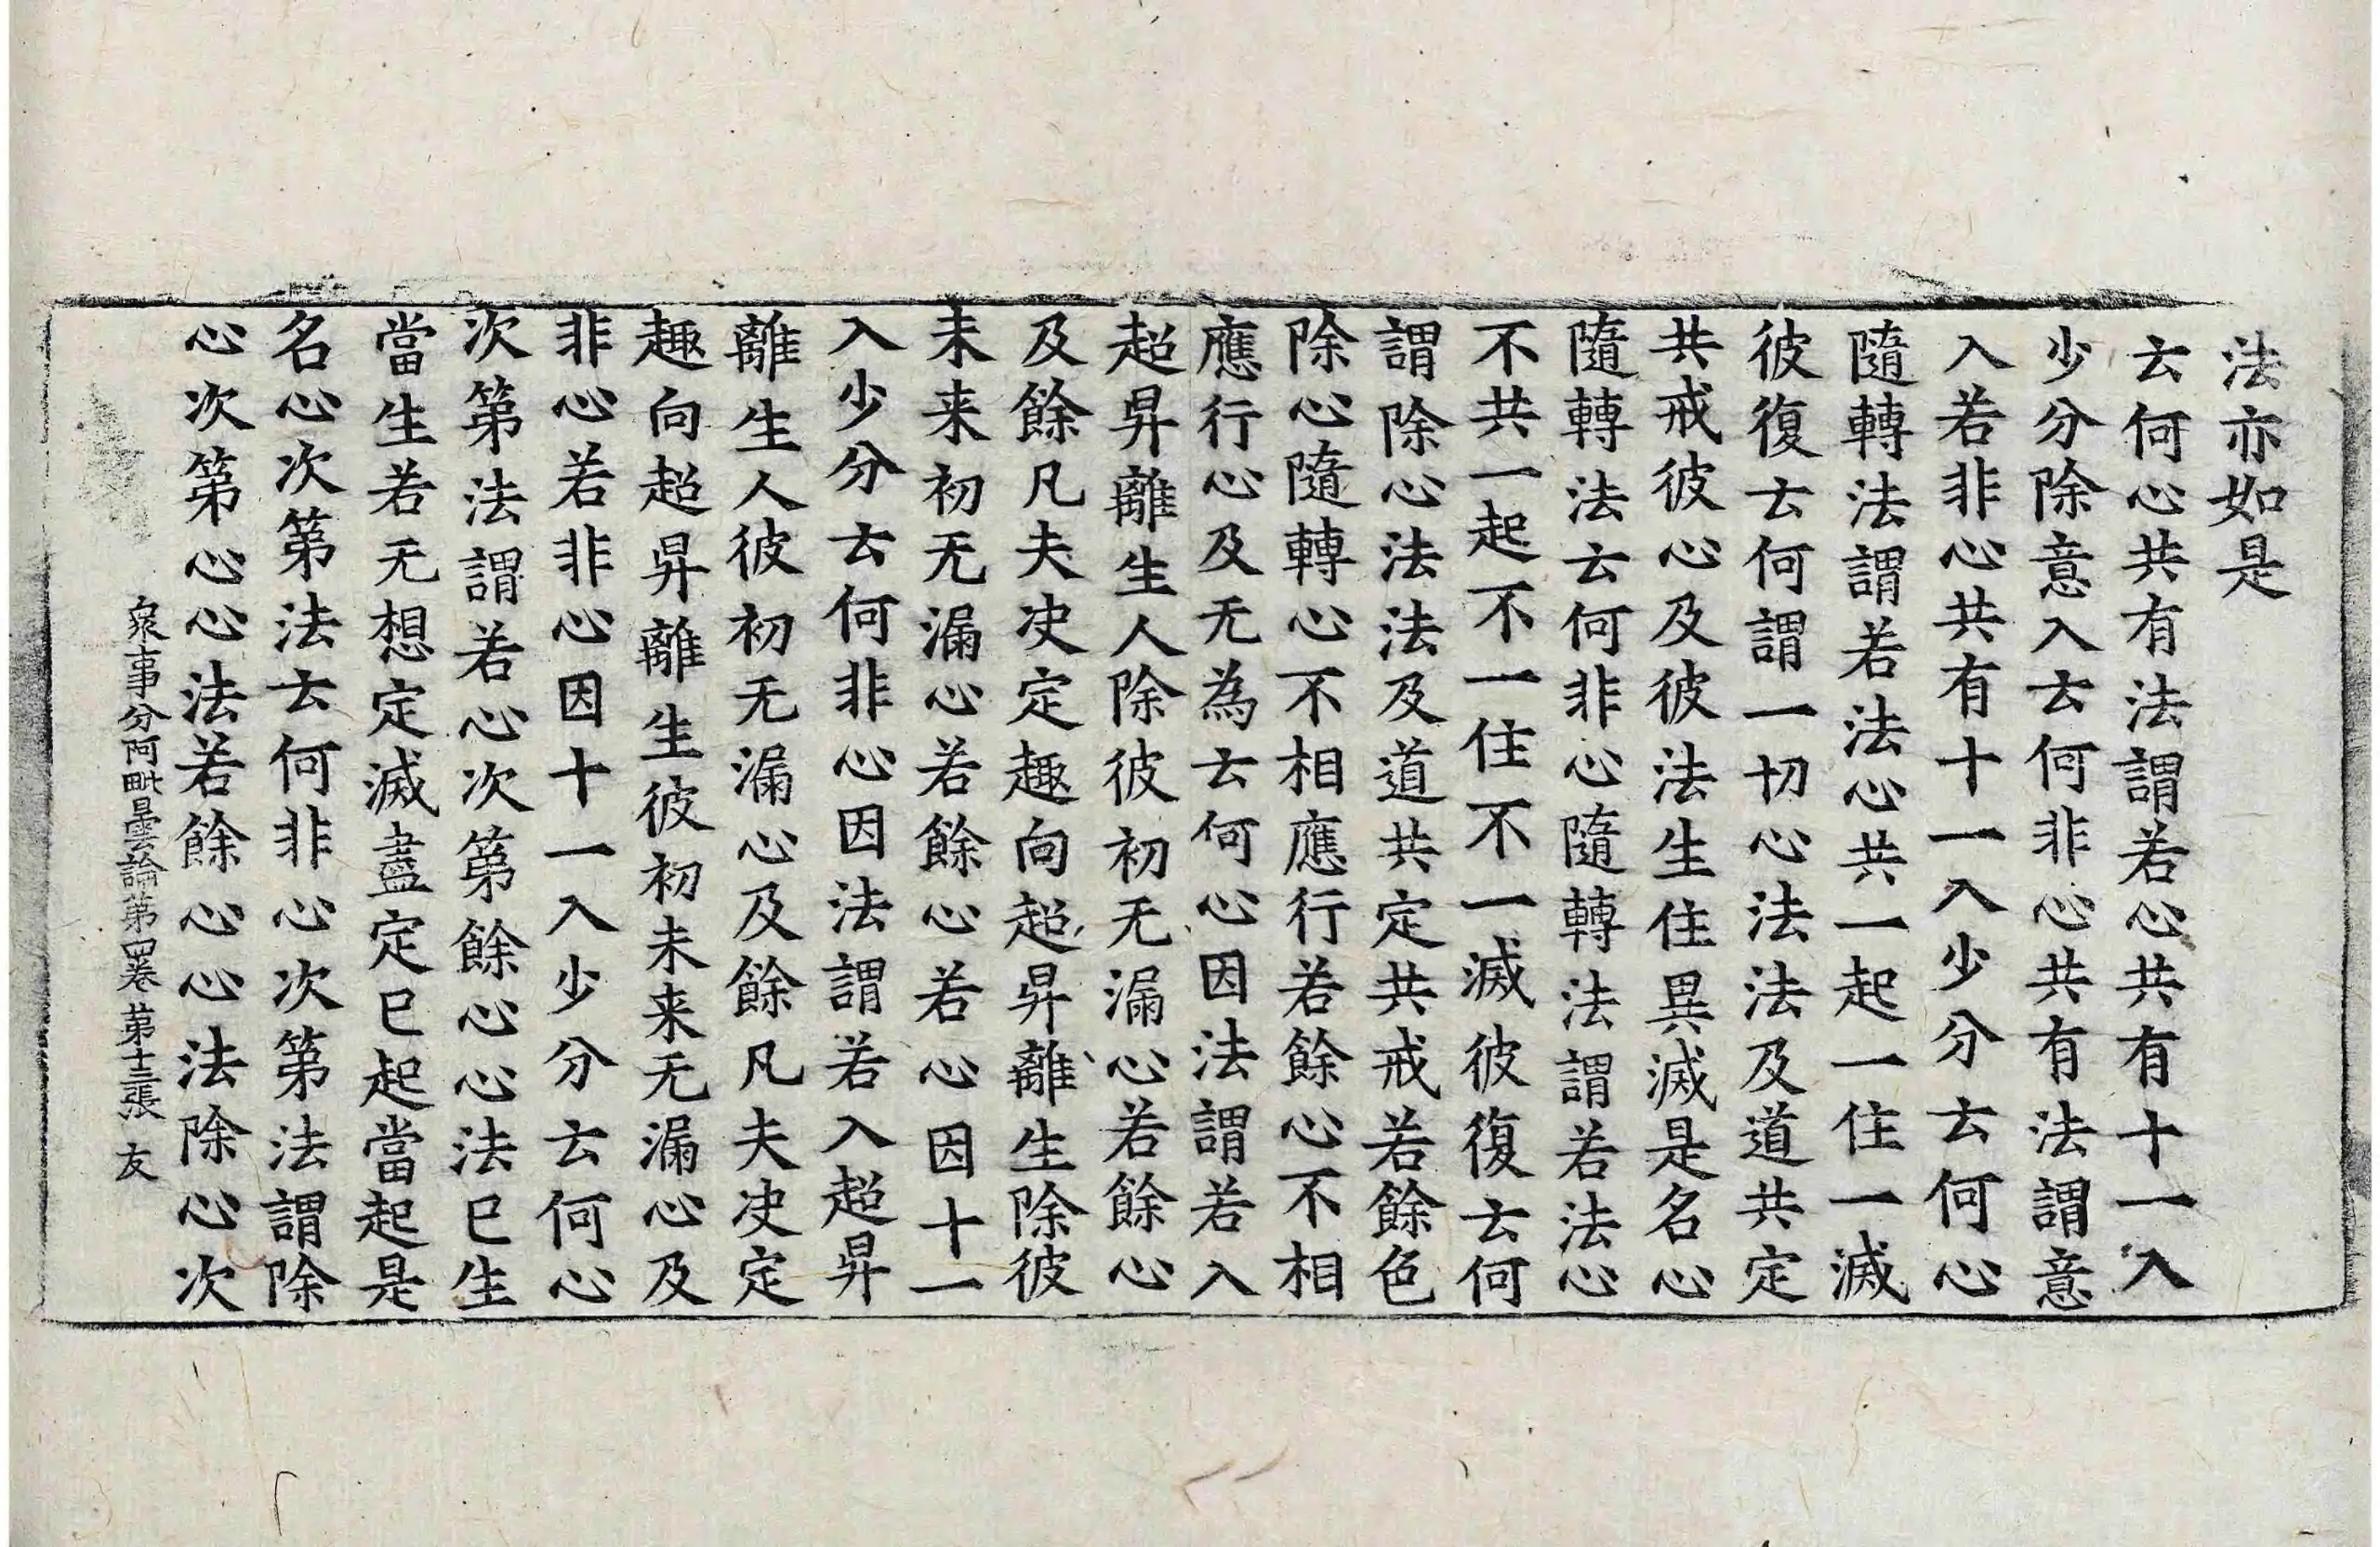 法亦如是
云何心共有法謂若心共有十一入
少分除意入云何非心共有法謂意
入若非心共有十一入少分云何心
隨轉法謂若法心共一起一住一滅
彼復云何謂一切心法法及道共定
共戒彼心及彼法生住異滅是名心
隨轉法云何非心隨轉法謂若法心
不共一起不一住不一滅彼復云何
謂除心法法及道共定共戒若餘色
除心隨轉心不相應行若餘心不相
應行心及无為云何心因法謂若入
超昇離生人除彼初无漏心若餘心
及餘凡夫决定趣向超昇離生除彼
未来初无漏心若餘心若心因十一
入少分云何非心因法謂若入超昇
離生人彼初无漏心及餘凡夫决定
趣向超昇離生彼初未来无漏心及
非心若非心因十一入少分云何心
次第法謂若心次第餘心心法已生
當生若无想定滅盡定已起當起是
名心次第法云何非心次第法謂除
心次第心心法若餘心心法除心次
衆事分阿毗曇論第四卷 第十三張 友